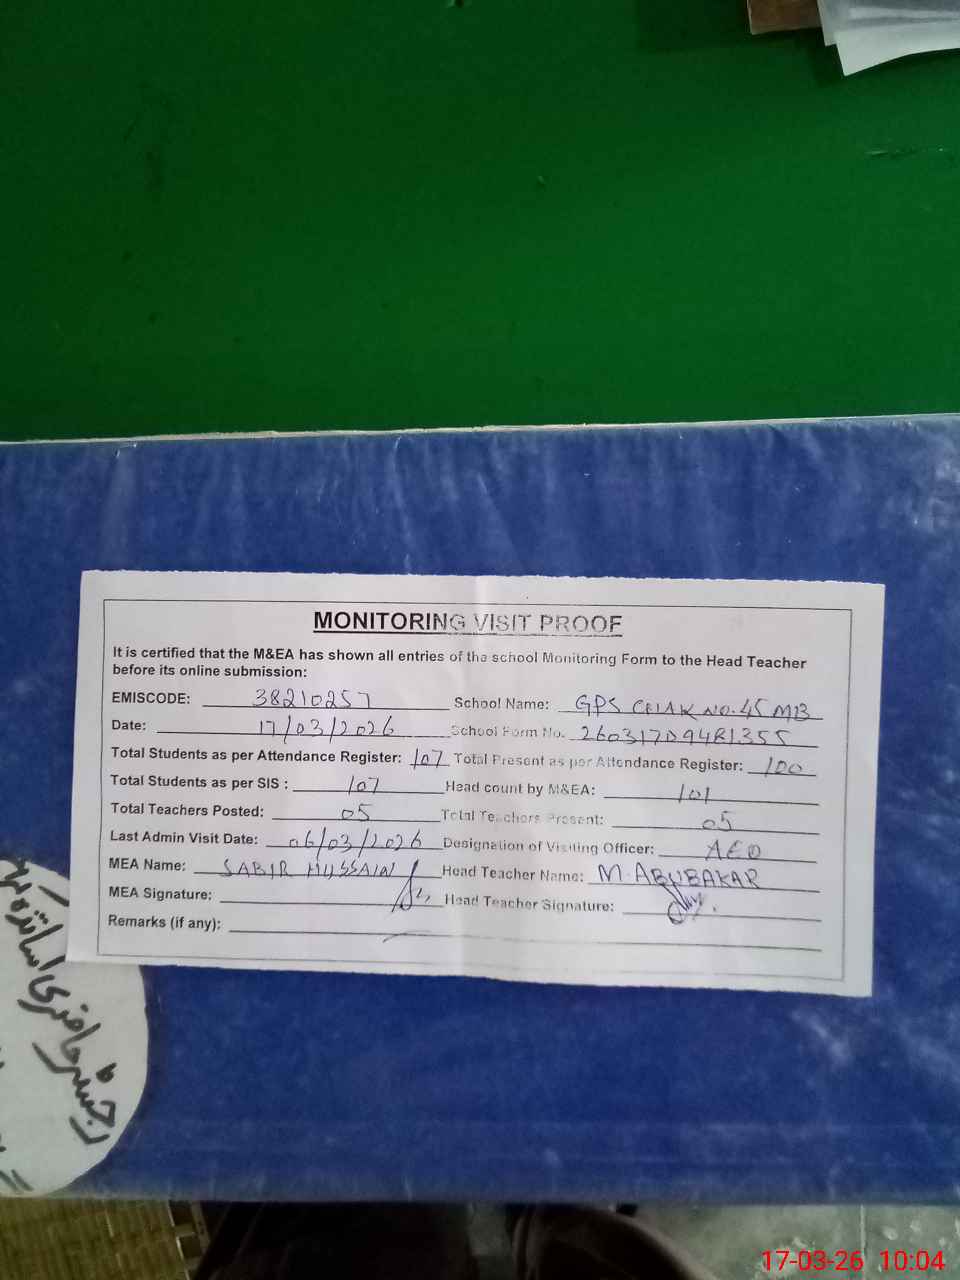 MONITORING VISIT PROOF
It is certified that the M&EA has shown all entries of the school Monitoring Form to the Head Teacher
before its online submission:
EMISCODE: 38210257 School Name: GPS CHAK NO. 45 MB
Date: 17/03/2026 School Form No. 260317D94R1355
Total Students as per Attendance Register: 107 Total Present as per Attendance Register: 100
Total Students as per SIS : 107 Head count by M&EA: 101
Total Teachers Posted: 05 Total Teachers Present: 05
Last Admin Visit Date: 06/03/2026 Designation of Visiting Officer: AEO
MEA Name: SABIR HUSSAIN Head Teacher Name: M. ABUBAKAR
MEA Signature: Head Teacher Signature:
Remarks (if any):
رجسٹر حاضری اساتذہ
17-03-26 10:04